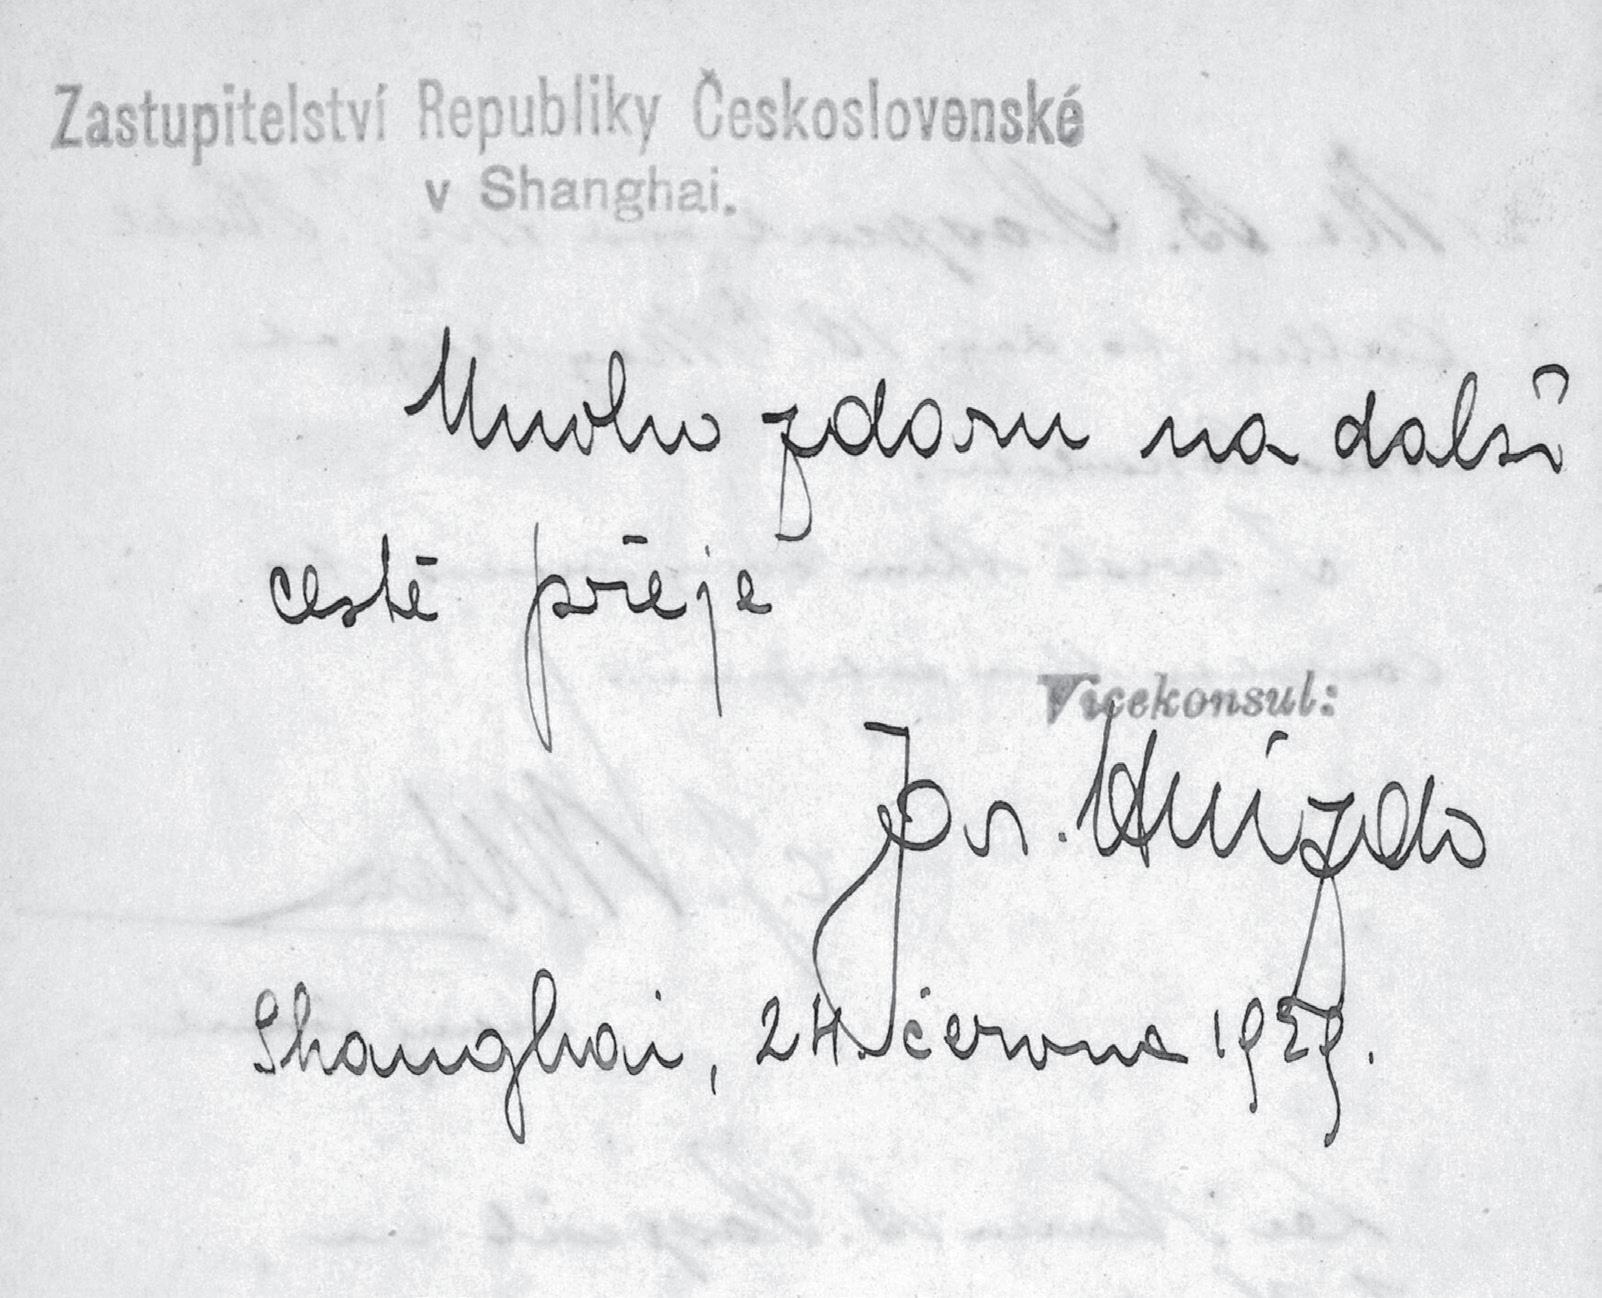 Zastupitelství Republiky Československé
v Shanghai.
Mnoho zdaru na další
cestě přeje
Vicekonsul:
Dr. Hnízdo
Shanghai, 24. června 1929.